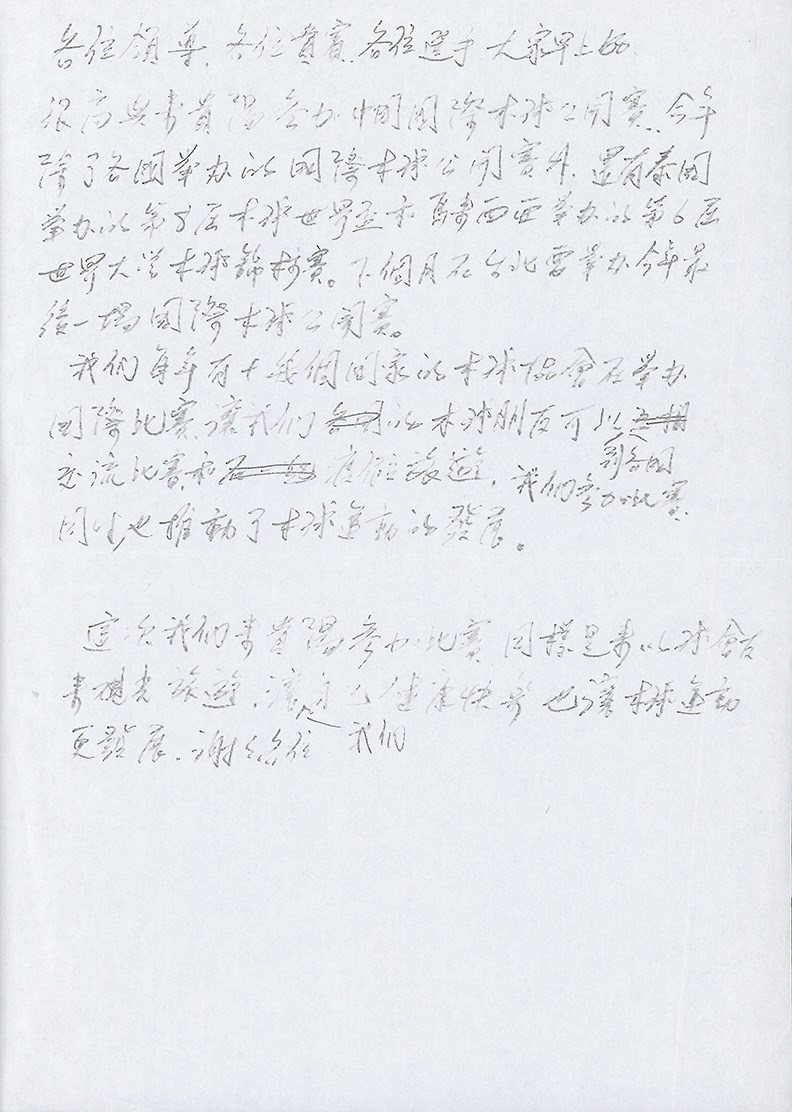 各位領導、各位貴賓、各位選手 大家早上好
很高兴來貴陽参加中国国際木球公開賽、今年
除了各国举办的国際木球公開賽外、還有泰国
举办的第8屆木球世界盃和馬來西亜举办的第6屆
世界大学木球錦标賽。下個月在台北會举办今年最
後一場国際木球公開賽。
我们每年有十幾個国家的木球協會在举办
国際比賽、讓我们的木球朋友可以
到各国
交流比賽和度假旅遊,我们参加比賽
同时,也推動了木球運動的發展。
這次我们來貴陽参加比賽 同樣是來以球會友
來观光旅遊,讓我们自己健康快樂 也讓木球運動
更發展.谢谢各位